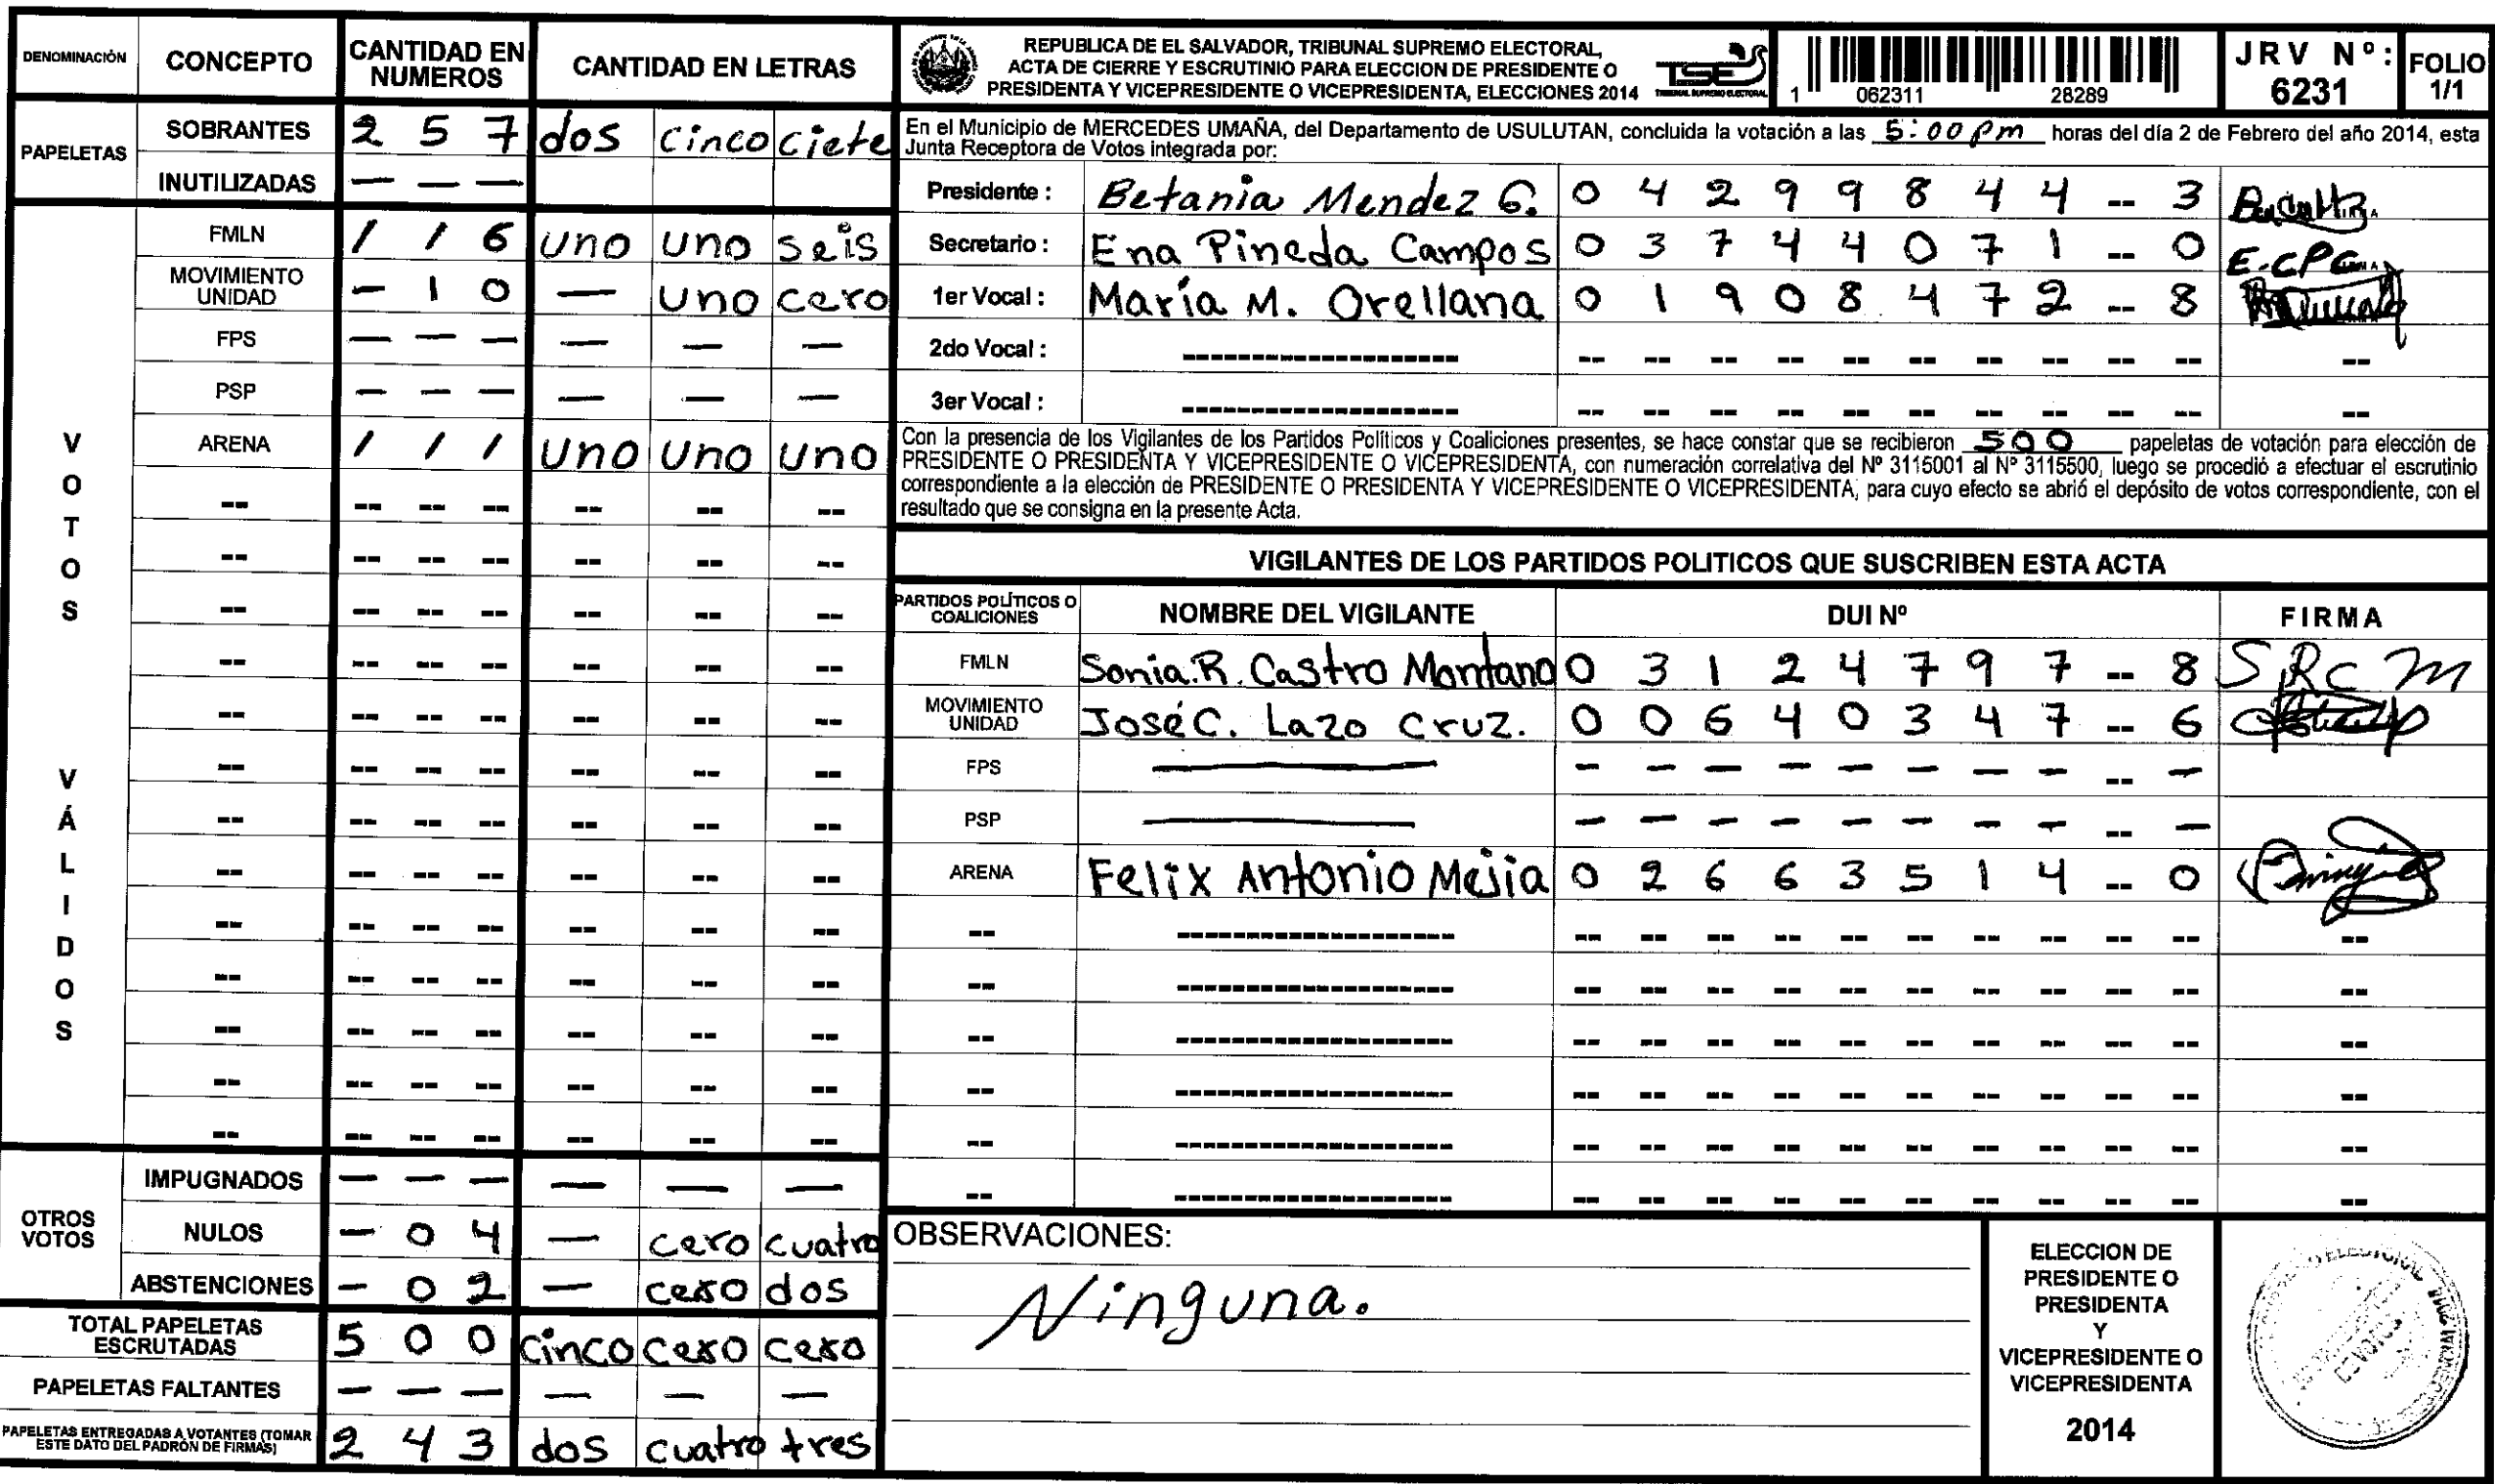 DENOMINACIÓN CONCEPTO CANTIDAD EN NUMEROS CANTIDAD EN LETRAS
PAPELETAS
SOBRANTES 2 5 7 dos cinco ciete
INUTILIZADAS — — —
VOTOS VÁLIDOS
FMLN 1 1 6 uno uno seis
MOVIMIENTO UNIDAD — 1 0 — uno cero
FPS — — — — — —
PSP — — — — — —
ARENA 1 1 1 uno uno uno
OTROS VOTOS
IMPUGNADOS — — — — — —
NULOS — 0 4 — cero cuatro
ABSTENCIONES — 0 2 — cero dos
TOTAL PAPELETAS ESCRUTADAS 5 0 0 cinco cero cero
PAPELETAS FALTANTES — — — — — —
PAPELETAS ENTREGADAS A VOTANTES (TOMAR ESTE DATO DEL PADRÓN DE FIRMAS) 2 4 3 dos cuatro tres
REPUBLICA DE EL SALVADOR, TRIBUNAL SUPREMO ELECTORAL,
ACTA DE CIERRE Y ESCRUTINIO PARA ELECCION DE PRESIDENTE O
PRESIDENTA Y VICEPRESIDENTE O VICEPRESIDENTA, ELECCIONES 2014
TSE
TRIBUNAL SUPREMO ELECTORAL
1 062311 28289
JRV Nº: 6231
FOLIO 1/1
En el Municipio de MERCEDES UMAÑA, del Departamento de USULUTAN, concluida la votación a las 5:00 pm horas del día 2 de Febrero del año 2014, esta
Junta Receptora de Votos integrada por:
Presidente : Betania Mendez G. 0 4 2 9 9 8 4 4 -- 3
Secretario : Ena Pineda Campos 0 3 7 4 4 0 7 1 -- 0 E.CPC
1er Vocal : María M. Orellana 0 1 9 0 8 4 7 2 -- 8
2do Vocal :
3er Vocal :
Con la presencia de los Vigilantes de los Partidos Políticos y Coaliciones presentes, se hace constar que se recibieron 500 papeletas de votación para elección de
PRESIDENTE O PRESIDENTA Y VICEPRESIDENTE O VICEPRESIDENTA, con numeración correlativa del Nº 3115001 al Nº 3115500, luego se procedió a efectuar el escrutinio
correspondiente a la elección de PRESIDENTE O PRESIDENTA Y VICEPRESIDENTE O VICEPRESIDENTA, para cuyo efecto se abrió el depósito de votos correspondiente, con el
resultado que se consigna en la presente Acta.
VIGILANTES DE LOS PARTIDOS POLITICOS QUE SUSCRIBEN ESTA ACTA
PARTIDOS POLÍTICOS O COALICIONES NOMBRE DEL VIGILANTE DUI Nº FIRMA
FMLN Sonia.R. Castro Montano 0 3 1 2 4 7 9 7 -- 8 SRCM
MOVIMIENTO UNIDAD José C. Lazo Cruz. 0 0 6 4 0 3 4 7 -- 6
FPS — — — — — — — — — -- —
PSP — — — — — — — — — -- —
ARENA Felix Antonio Mejia 0 2 6 6 3 5 1 4 -- 0
OBSERVACIONES:
Ninguna.
ELECCION DE
PRESIDENTE O
PRESIDENTA
Y
VICEPRESIDENTE O
VICEPRESIDENTA
2014